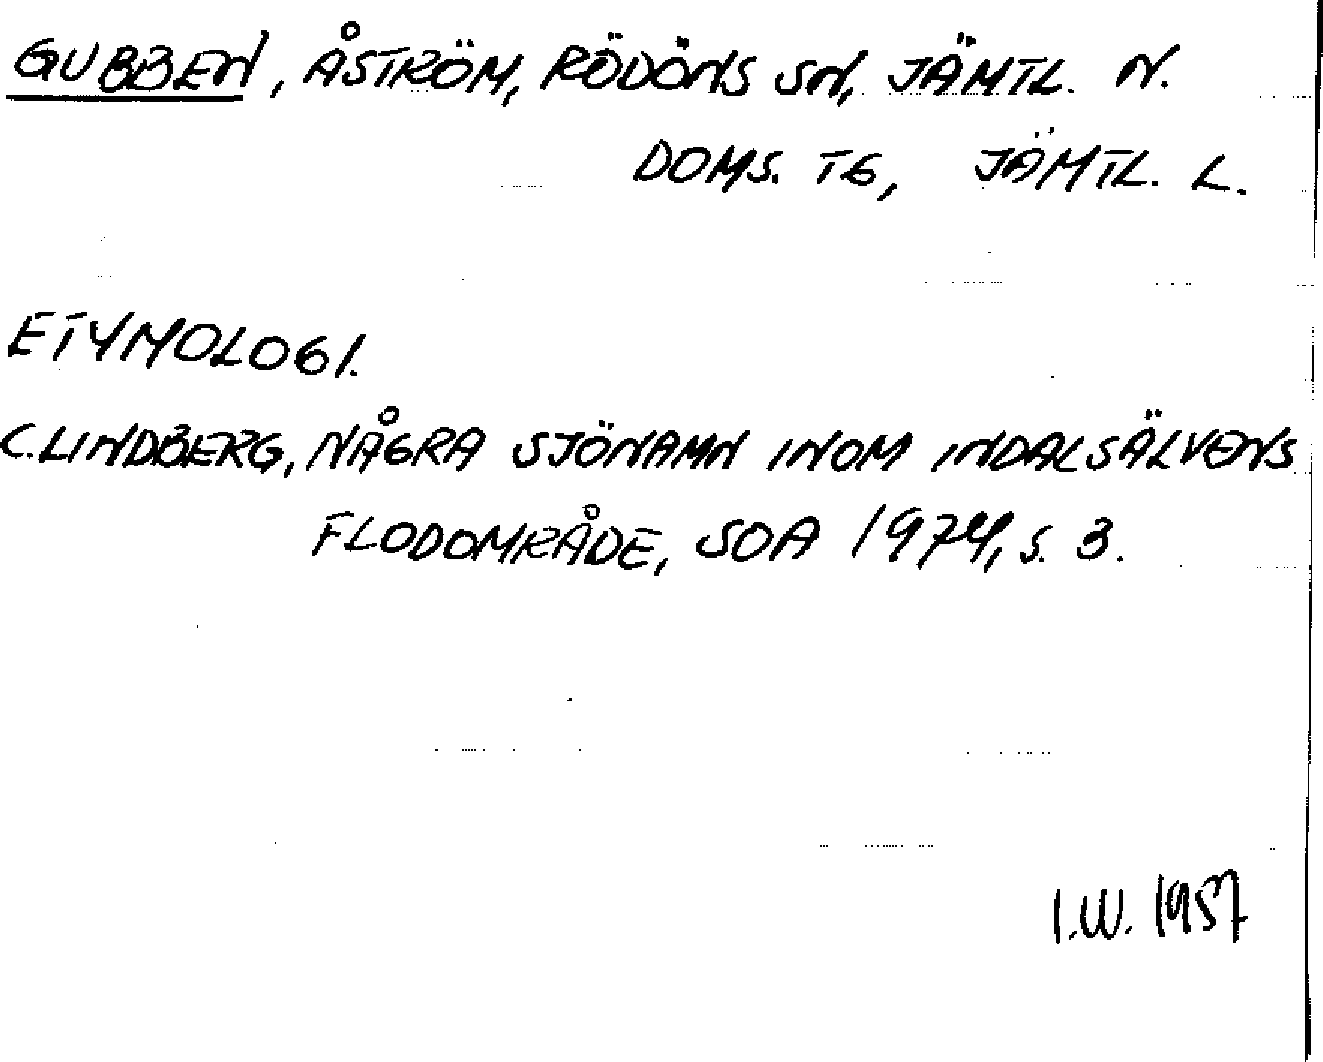 GUBBEN, ÅSTRÖM, RÖDÖNS SN, JÄMTL. N.
DOMS. TG, JÄMTL. L.
ETYMOLOGI.
C.LINDBERG, NÅGRA SJÖNAMN INOM INDALSÄLVENS
FLODOMRÅDE, SOA 1974, S. 3.
I.W. 1987